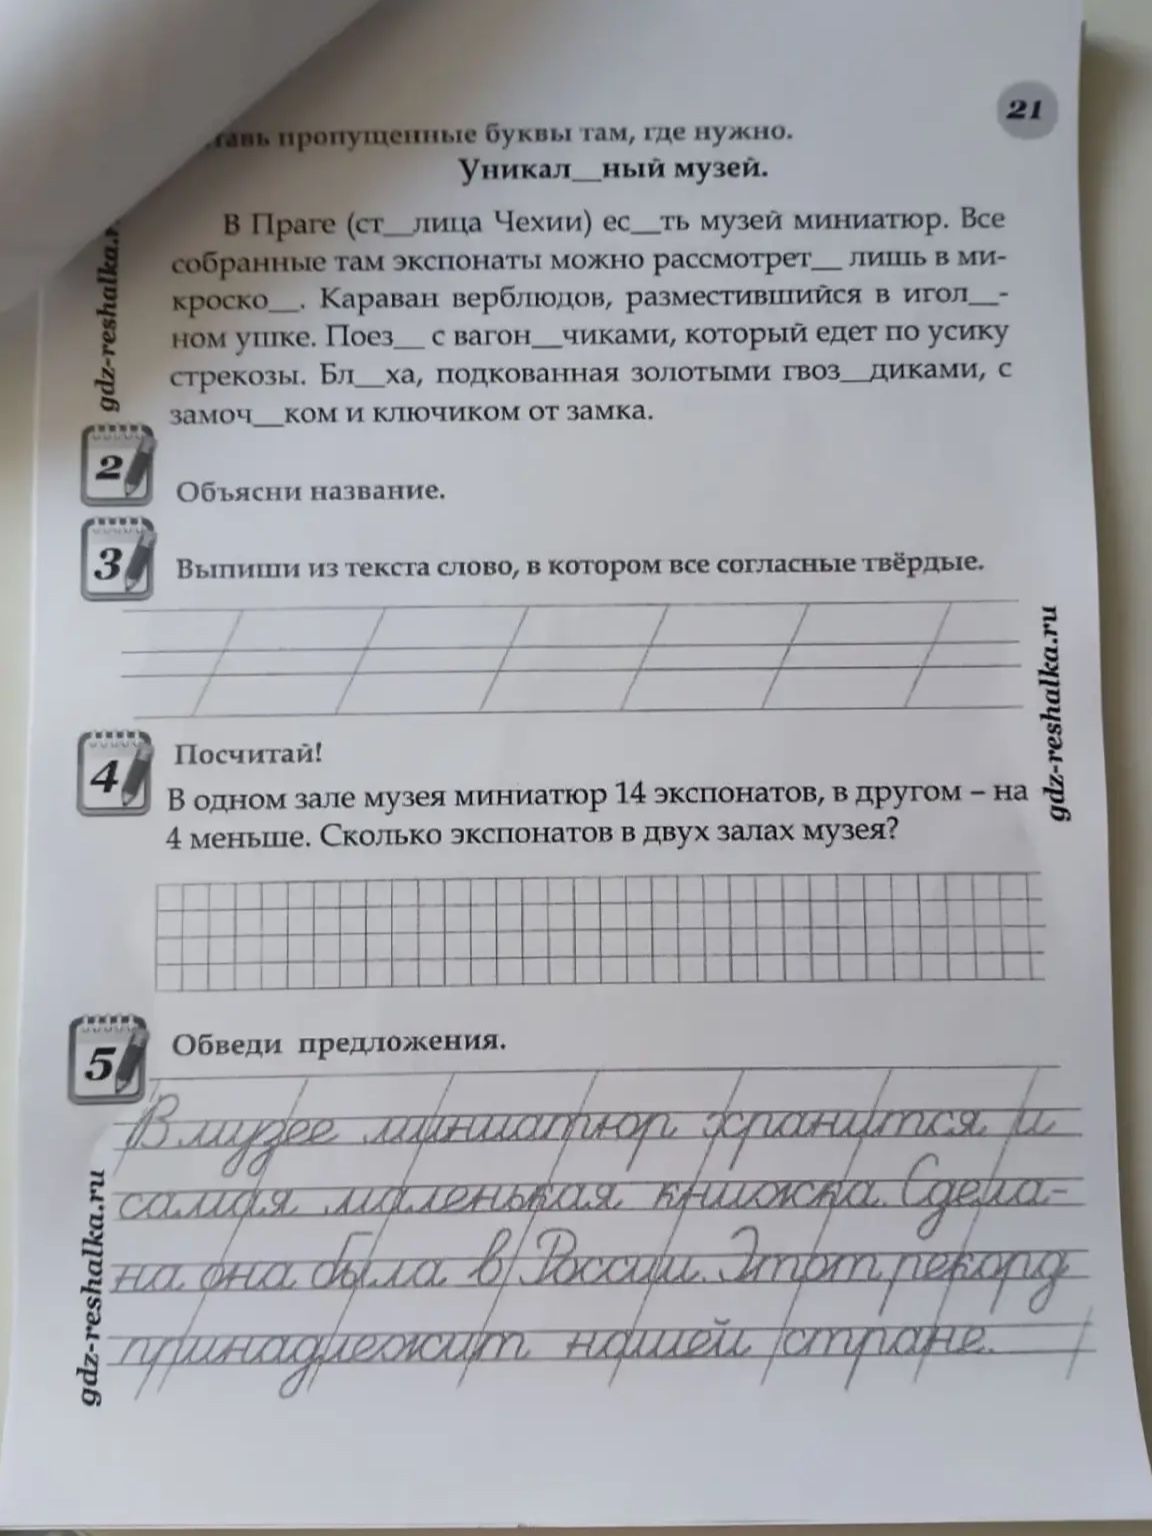 21
пропущенные буквы там, где нужно.
Уникал__ный музей.
В Праге (ст__лица Чехии) ес__ть музей миниатюр. Все
собранные там экспонаты можно рассмотрет__ лишь в ми-
кроско__. Караван верблюдов, разместившийся в игол__-
ном ушке. Поез__ с вагон__чиками, который едет по усику
стрекозы. Бл__ха, подкованная золотыми гвоз__диками, с
замоч__ком и ключиком от замка.
gdz-reshalka.r
2
Объясни название.
3
Выпиши из текста слово, в котором все согласные твёрдые.
gdz-reshalka.ru
4
Посчитай!
В одном зале музея миниатюр 14 экспонатов, в другом – на
4 меньше. Сколько экспонатов в двух залах музея?
5
Обведи предложения.
В музее миниатюр хранится и
самая маленькая книжка. Сдела-
на она была в России. Этот рекорд
принадлежит нашей стране.
gdz-reshalka.ru